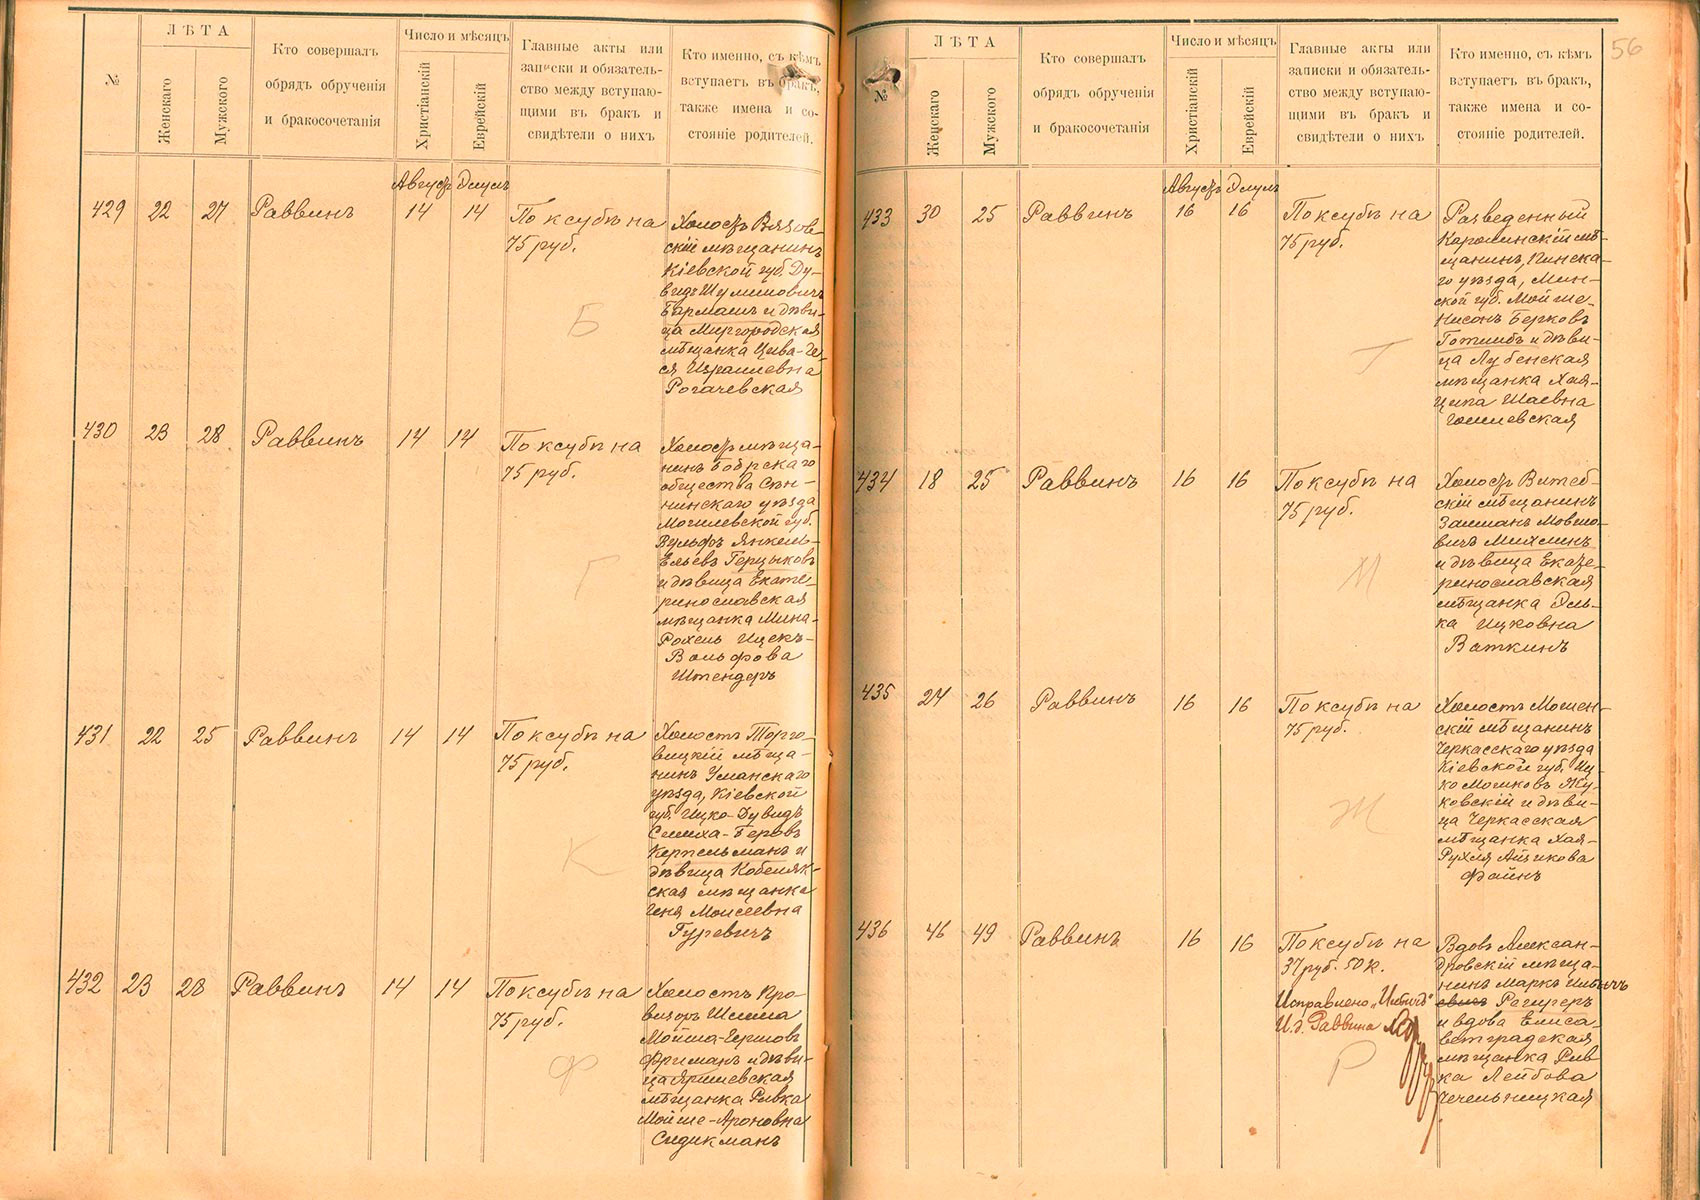 №
ЛѢТА
Женскаго
Мужского
Кто совершалъ
обрядъ обрученія
и бракосочетанія
Число и мѣсяцъ
Христіанскій
Еврейскій
Главные акты или
записки и обязатель-
ство между вступаю-
щими въ бракъ и
свидѣтели о нихъ
Кто именно, съ кѣмъ
вступаетъ въ бракъ,
также имена и со-
стояніе родителей.
Августъ Элулъ
429 22 27 Раввинъ 14 14
По ксубѣ на
75 руб.
Б
Холостъ Вязов-
скій мѣщанинъ
Кіевской губ. Ду-
видъ Шулимовичъ
Бармашъ и дѣви-
ца Миргородская
мѣщанка Цива-Ге-
ся Израилевна
Рогачевская
430 23 28 Раввинъ 14 14
По ксубѣ на
75 руб.
Г
Холостъ мѣща-
нинъ Бобрскаго
общества Сѣн-
нинскаго уѣзда
Могилевской губ.
Вульфъ Янкель-
Ельевъ Герцыковъ
и дѣвица Екате-
ринославская
мѣщанка Мина-
Рохель Ицекъ-
Вольфова
Штендеръ
431 22 25 Раввинъ 14 14
По ксубѣ на
75 руб.
К
Холостъ Торго-
вицкій мѣща-
нинъ Уманскаго
уѣзда, Кіевской
губ. Ицко-Дувидъ
Симха-Беровъ
Керпельманъ и
дѣвица Кобеляк-
ская мѣщанка
Геня Моисеевна
Гуревичъ
432 23 28 Раввинъ 14 14
По ксубѣ на
75 руб.
Ф
Холостъ Про-
визоръ Шлема
Мойша-Гершовъ
Фриманъ и дѣви-
ца Яришевская
мѣщанка Ривка
Мойше-Ароновна
Сидикманъ
56
№
ЛѢТА
Женскаго
Мужского
Кто совершалъ
обрядъ обрученія
и бракосочетанія
Число и мѣсяцъ
Христіанскій
Еврейскій
Главные акты или
записки и обязатель-
ство между вступаю-
щими въ бракъ и
свидѣтели о нихъ
Кто именно, съ кѣмъ
вступаетъ въ бракъ,
также имена и со-
стояніе родителей.
Августъ Элулъ
433 30 25 Раввинъ 16 16
По ксубѣ на
75 руб.
Г
Разведенный
Каролинскій мѣ-
щанинъ, Пинска-
го уѣзда, Мин-
ской губ. Мойше-
Нисонъ Берковъ
Готлибъ и дѣви-
ца Лубенская
мѣщанка Хая-
Ципа Шаевна
Гошлевская
434 18 25 Раввинъ 16 16
По ксубѣ на
75 руб.
М
Холостъ Витеб-
скій мѣщанинъ
Залманъ Мовшо-
вичъ Михлинъ
и дѣвица Екате-
ринославская
мѣщанка Эль-
ка Ицковна
Ваткинъ
435 24 26 Раввинъ 16 16
По ксубѣ на
75 руб.
Ж
Холостъ Мошен-
скій мѣщанинъ
Черкасскаго уѣзда
Кіевской губ. Иц-
ко Мошковъ Жу-
ковскій и дѣви-
ца Черкасская
мѣщанка Хая-
Рухля Айзикова
Файнъ
436 46 49 Раввинъ 16 16
По ксубѣ на
37 руб. 50 к.
Исправлено „Ильичъ"
И.д. Раввина
Р
Вдовъ Алексан-
дровскій мѣща-
нинъ Маркъ Ильичъ
Региреръ
и вдова Елиса-
ветградская
мѣщанка Рив-
ка Лейбова
Чечельницкая